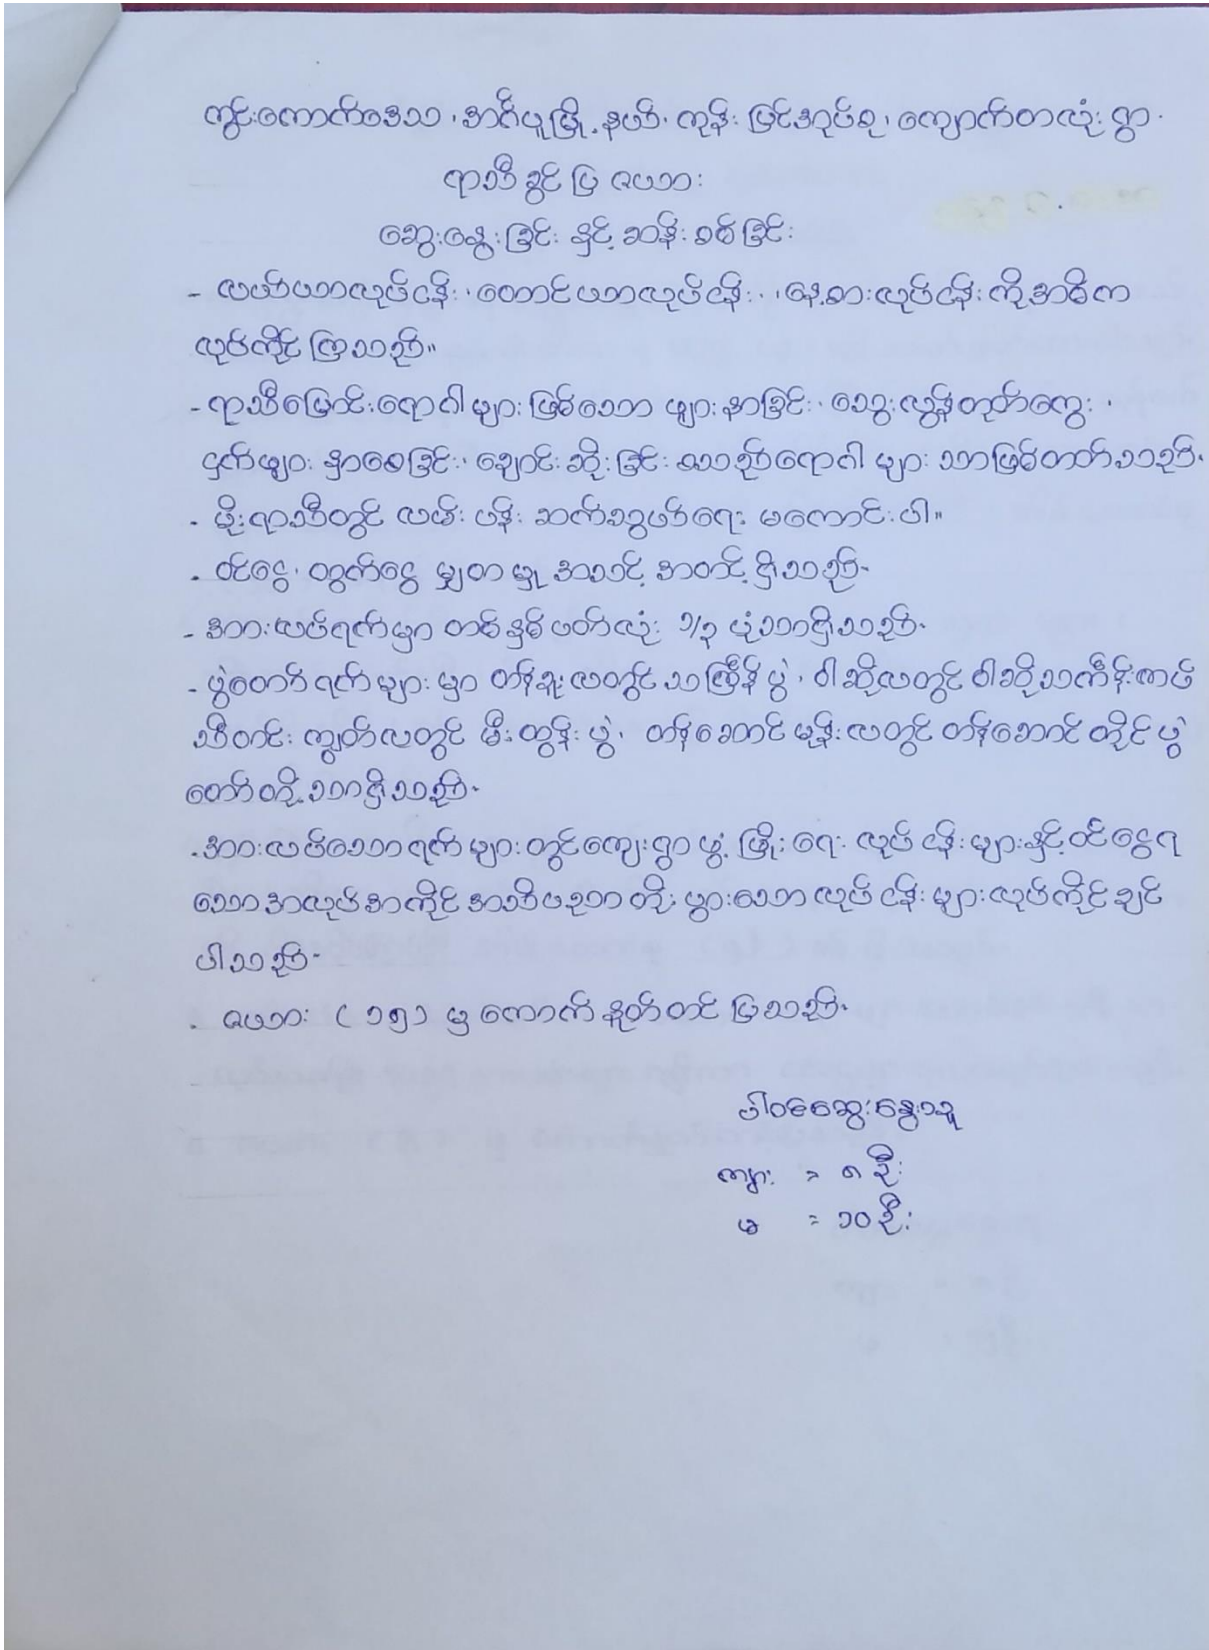 ကွင်းကောက်ဒေသ၊ အင်္ဂပူမြို့နယ်၊ ကုန်းမြင့်အုပ်စု၊ ကျောက်တလုံးရွာ။
ရာသီခွင်ပြဇယား
ဆွေးနွေးခြင်းနှင့်ဆန်းစစ်ခြင်း
- လယ်ယာလုပ်ငန်း၊ တောင်ယာလုပ်ငန်း၊ နေ့စားလုပ်ငန်းကိုအဓိက
လုပ်ကိုင်ကြသည်။
- ရာသီပြောင်းရောဂါများဖြစ်သော ဖျားနာခြင်း၊ သွေးလွန်တုပ်ကွေး၊
ငှက်ဖျား၊ နှာစေးခြင်း၊ ချောင်းဆိုးခြင်း စသည့်ရောဂါများသာဖြစ်တတ်သည်။
- မိုးရာသီတွင် လမ်းပန်းဆက်သွယ်ရေး မကောင်းပါ။
- ဝင်ငွေ၊ ထွက်ငွေ မျှတမှု အသင့်အတင့်ရှိသည်။
- အားလပ်ရက်မှာ တစ်နှစ်ပတ်လုံး ၁/၃ ပုံသာရှိသည်။
- ပွဲတော်ရက်များမှာ တန်ခူးလတွင်သင်္ကြန်ပွဲ၊ ဝါဆိုလတွင်ဝါဆိုသင်္ကန်းကပ်
သီတင်းကျွတ်လတွင် မီးထွန်းပွဲ၊ တန်ဆောင်မုန်းလတွင်တန်ဆောင်တိုင်ပွဲ
တော်တို့သာရှိသည်။
- အားလပ်သောရက်များတွင်ကျေးရွာဖွံ့ဖြိုးရေးလုပ်ငန်းများနှင့်ဝင်ငွေရ
သောအလုပ်အကိုင်အသိပညာတိုးပွားသောလုပ်ငန်းများလုပ်ကိုင်ချင်
ပါသည်။
- ဇယား (၁၅) မှ ကောက်နုတ်တင်ပြသည်။
ပါဝင်ဆွေးနွေးသူ
ကျား = ၈ ဦး
မ = ၁၀ ဦး